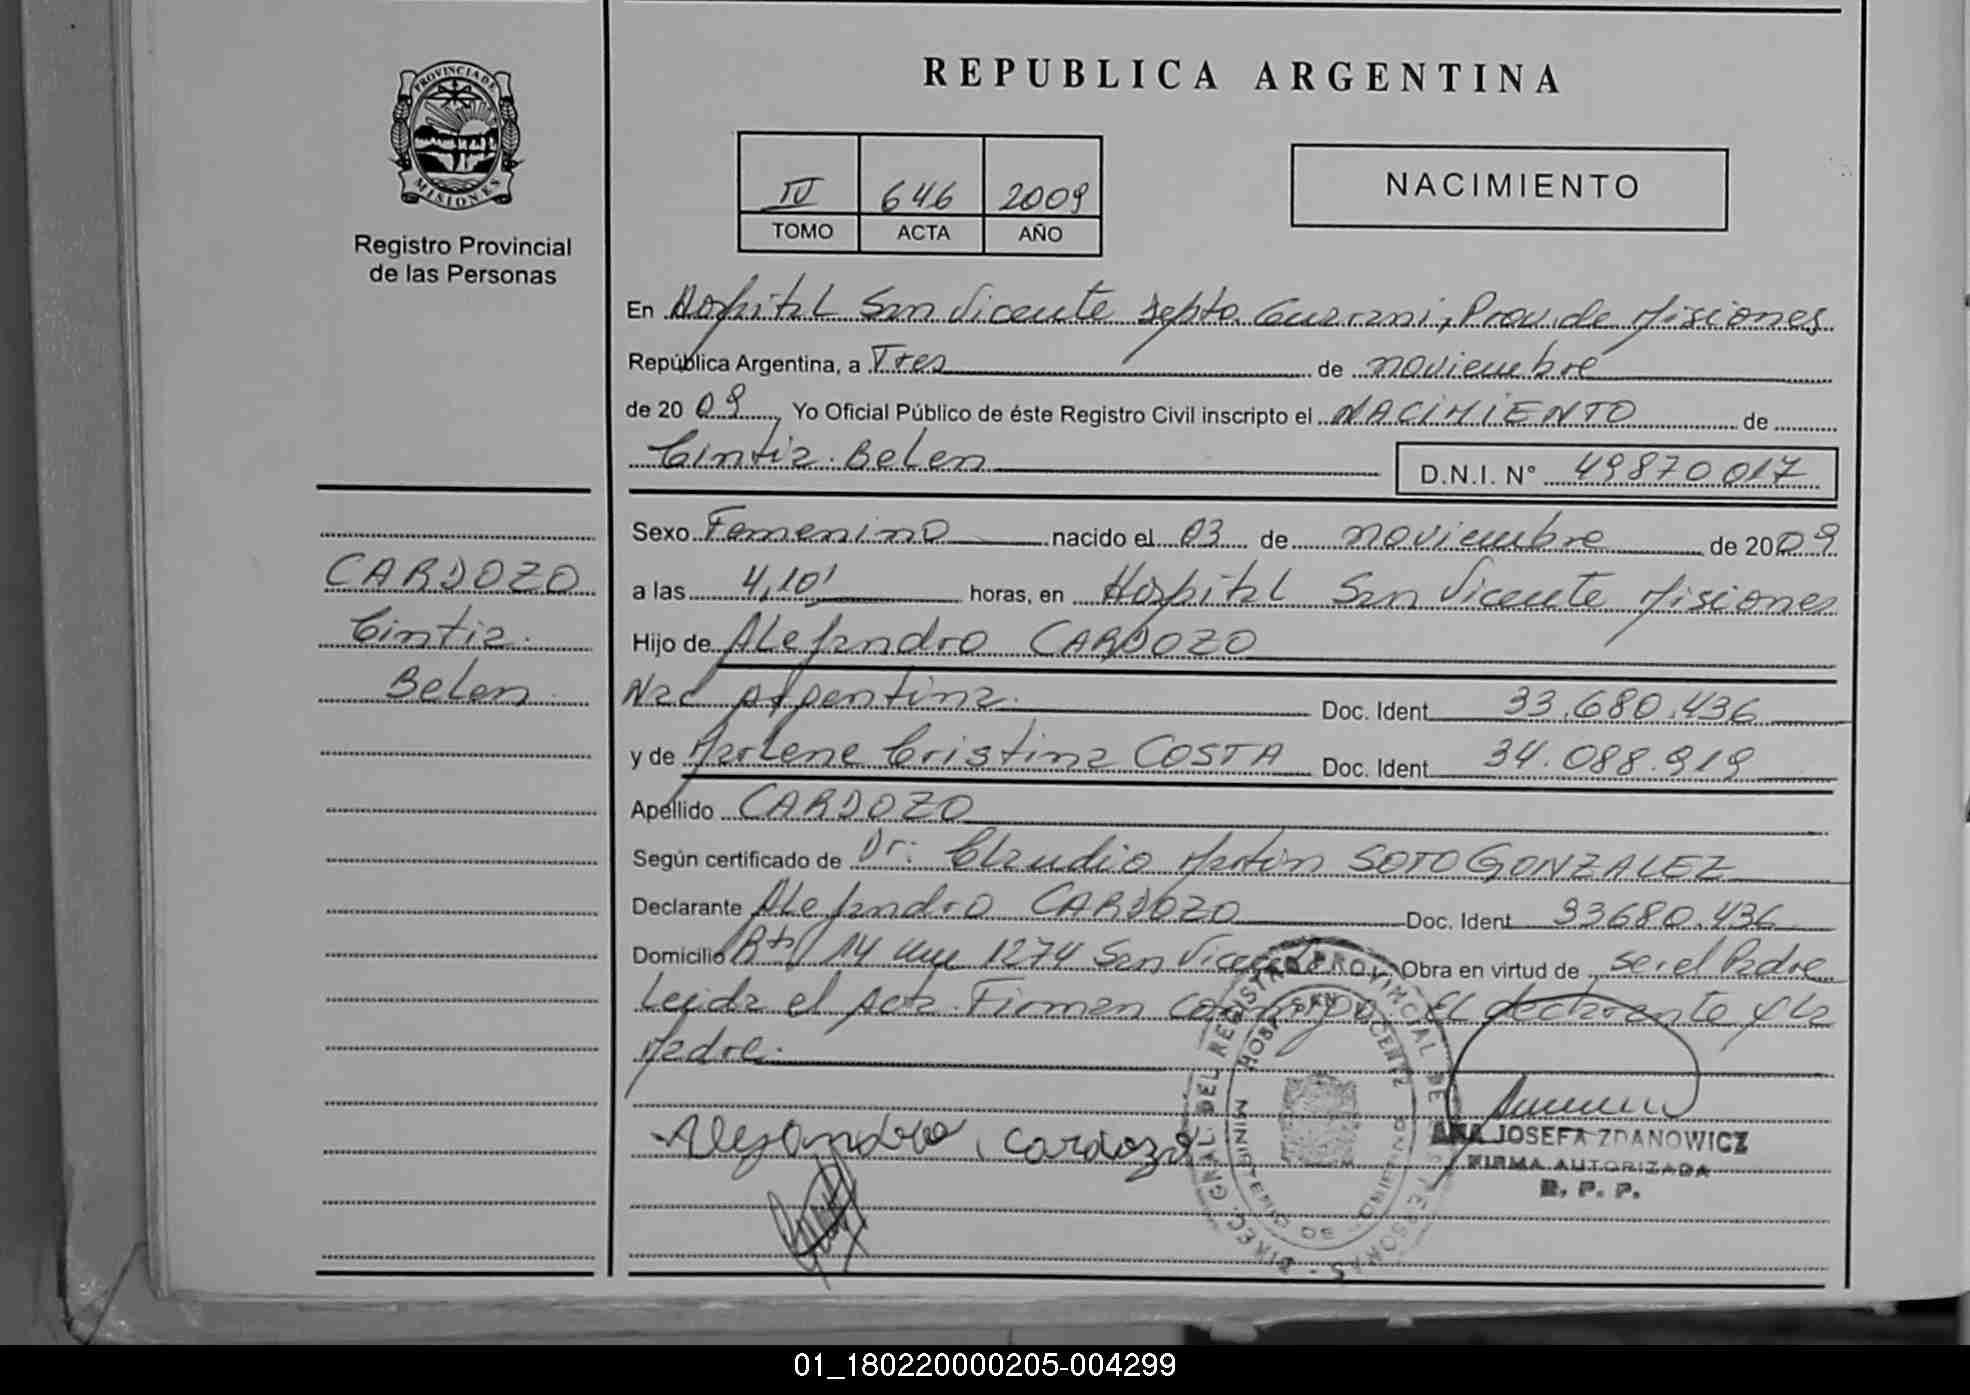 PROVINCIA DE
MISIONES
Registro Provincial
de las Personas
CARDOZO
Cintia
Belen
REPUBLICA ARGENTINA
IV 646 2009
TOMO ACTA AÑO
NACIMIENTO
En Hospital San Vicente Depto. Guarani, Prov. de Misiones
República Argentina, a Tres de noviembre
de 2009, Yo Oficial Público de éste Registro Civil inscripto el NACIMIENTO de
Cintia Belen D.N.I. N° 49870017
Sexo Femenino nacido el 03 de noviembre de 2009
a las 4,10' horas, en Hospital San Vicente Misiones
Hijo de Alejandro CARDOZO
Nac Argentina. Doc. Ident. 33.680.436
y de Marlene Cristina COSTA Doc. Ident. 34.088.919
Apellido CARDOZO
Según certificado de Dr: Claudio Martin SOTO GONZALEZ
Declarante Alejandro CARDOZO Doc. Ident. 33680.436
Domicilio Rta 14 km 1274 San Vicente Obra en virtud de ser el Padre
Leida el Acta. Firman conmigo El declarante y la
Madre.
Alejandro Cardozo
DIREC. GRAL. DEL REGISTRO PROVINCIAL DE PERSONAS
SAN VICENTE
MINISTERIO DE GOBIERNO
ANA JOSEFA ZDANOWICZ
FIRMA AUTORIZADA
R. P. P.
01_180220000205-004299